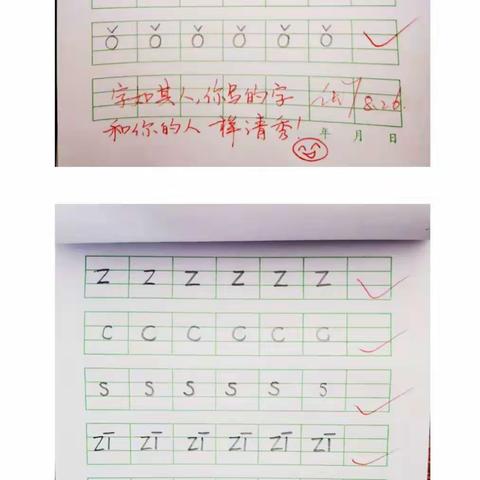 ǒ ǒ ǒ ǒ ǒ ǒ
字如其人,你写的字
和你的人一样清秀!
8.26.
年 月 日
z z z z z z
c c c c c c
s s s s s s
zī zī zī zī zī zī